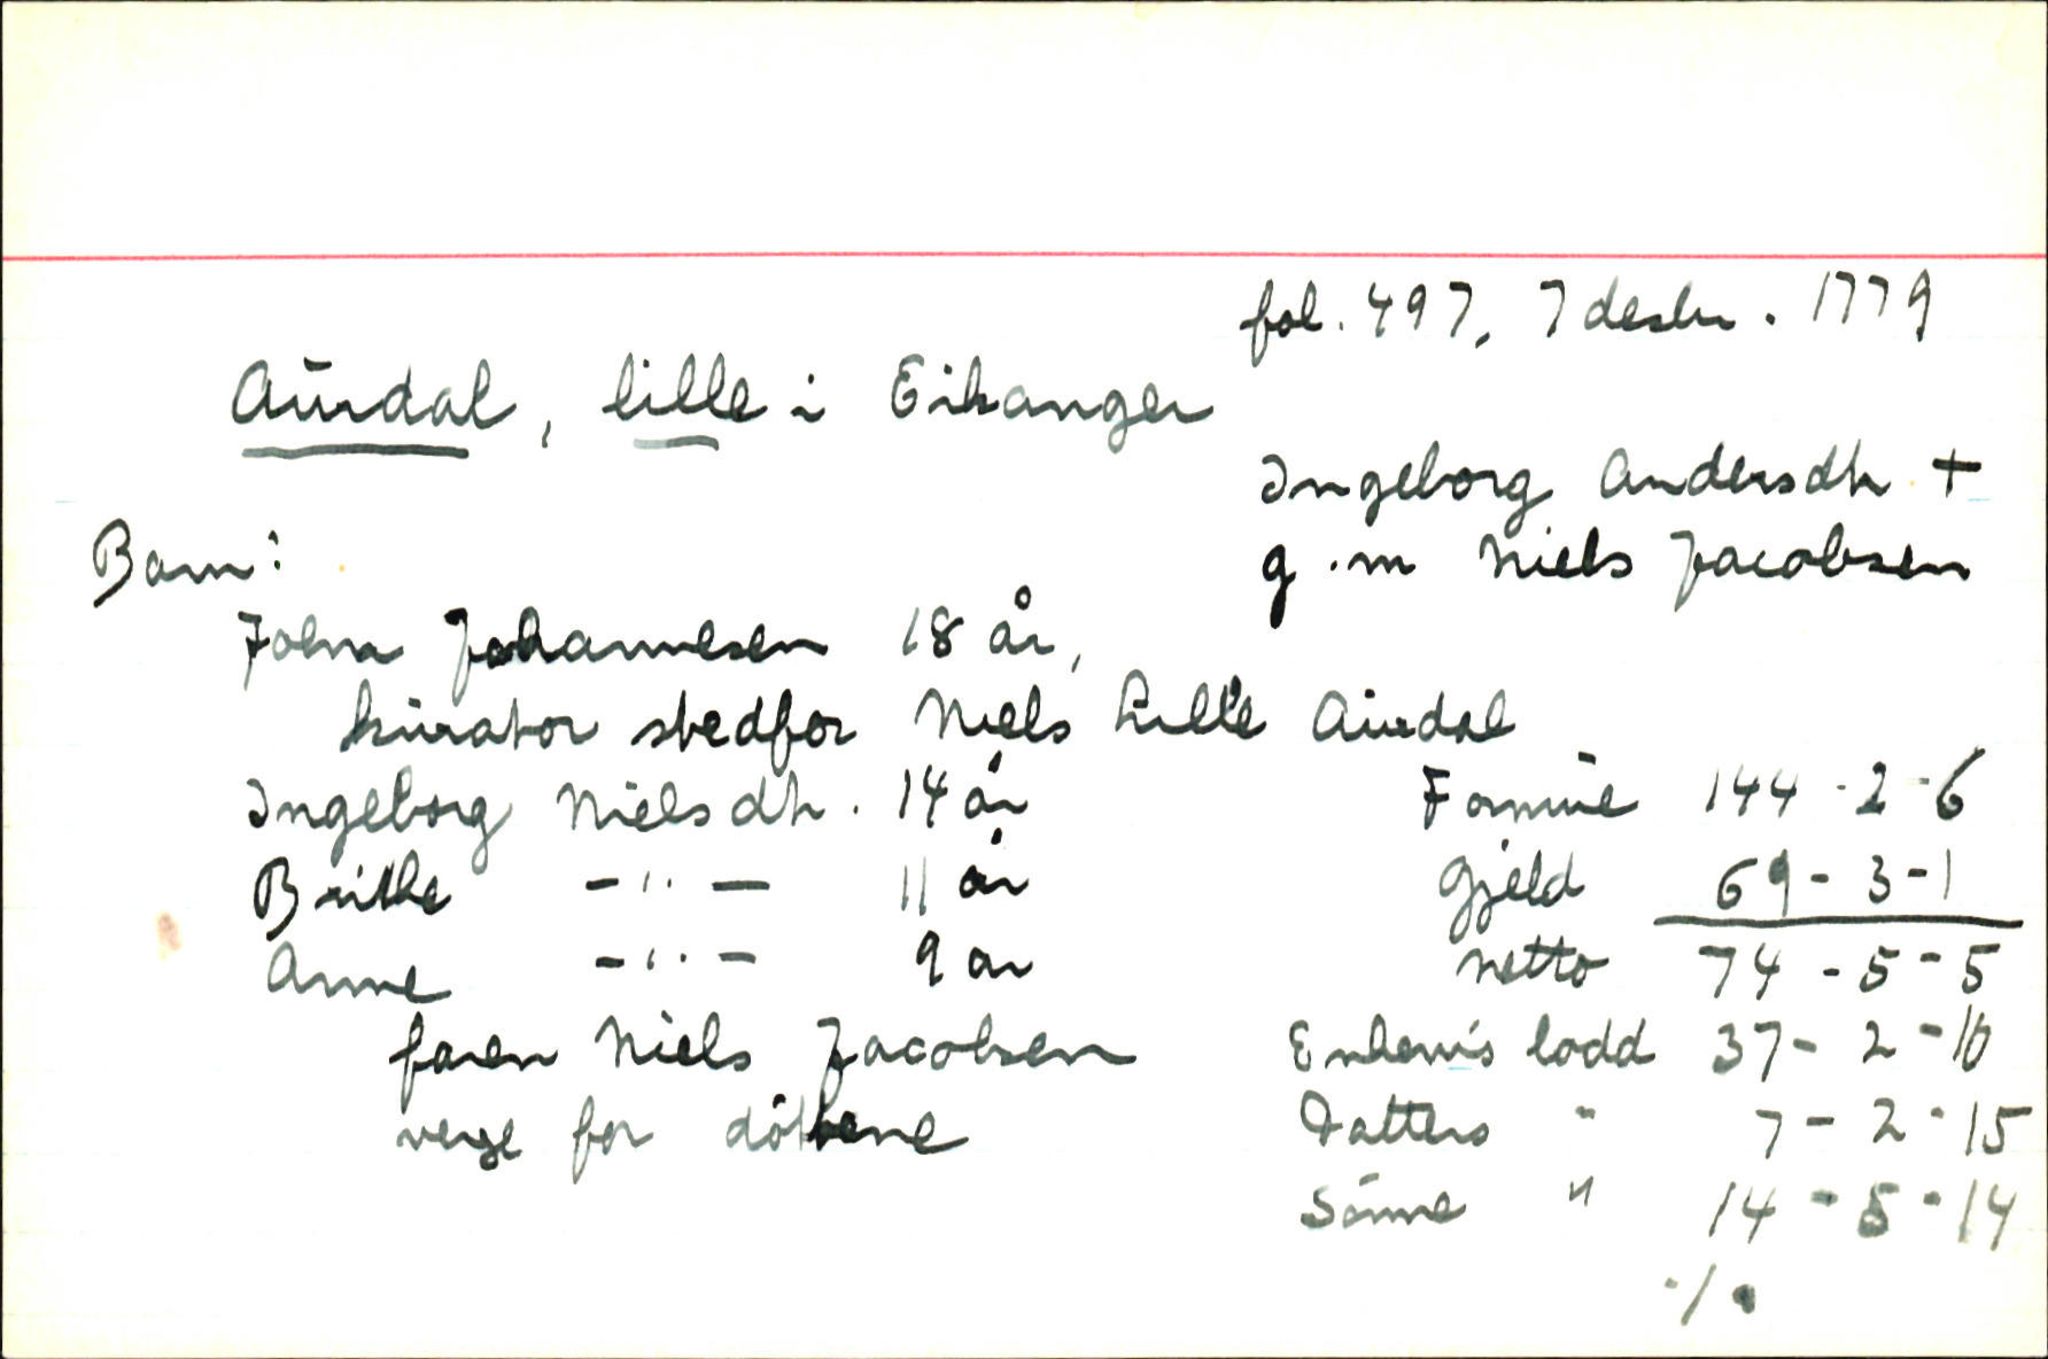 fol. 497, 7 desbr. 1779
Aurdal, lille i Eikanger
Ingeborg Andersdtr +
g.m Niels Jacobsen
Barn:
John Johannesen 18 år,
kurator stedfar Niels Lille Aurdal
Ingeborg Nielsdtr. 14 år
Brithe -"- 11 år
Anne -"- 9 år
faren Niels Jacobsen
verge for døtrene
Formue 144-2-6
Gjeld 69-3-1
netto 74-5-5
Enkem's lodd 37-2-10
Datters " 7-2-15
Sønne " 14-5-14